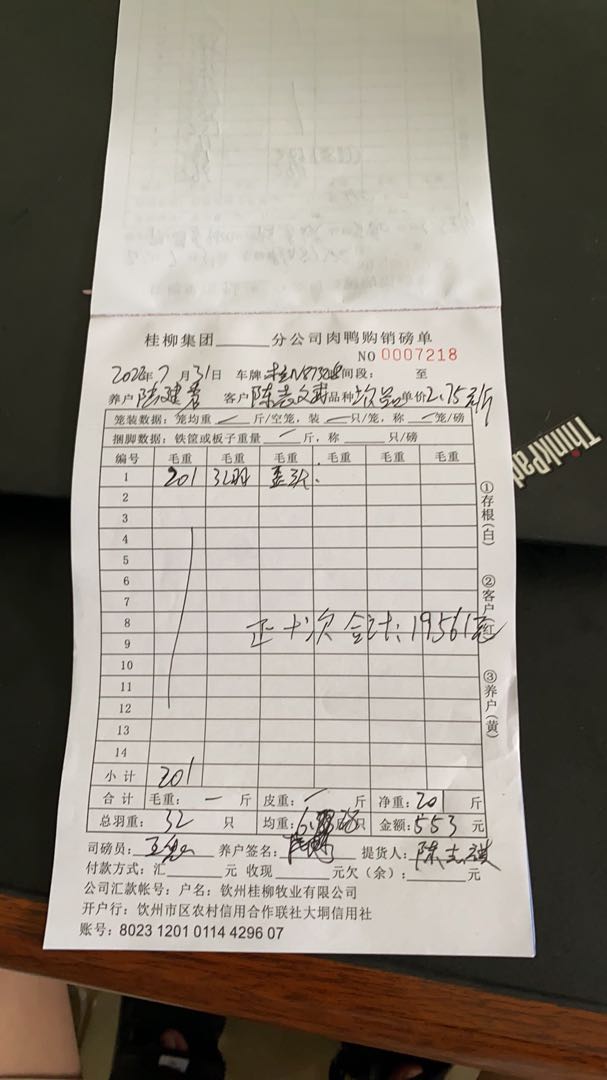 桂柳集团______分公司肉鸭购销磅单
NO 0007218
2024年7月31日 车牌: 时间段: 至
养户 陆建 客户 陈志 品种 单价2.75元/斤
笼装数据: 笼均重 一 斤/空笼, 装 一 只/笼, 称 一 笼/磅
捆脚数据: 铁筐或板子重量 一 斤, 称 只/磅
编号 毛重 毛重 毛重 毛重 毛重 毛重
1 201 32羽
2
3
4
5
6
7
8
正十次 合计: 19561元
9
10
11
12
13
14
小计 201
合计 毛重: 一 斤 皮重: 一 斤 净重: 201 斤
总羽重: 32 只 均重: 斤/只 金额: 553 元
司磅员: 养户签名: 提货人: 陈志
付款方式: 汇______元 收现______元欠(余):______元
公司汇款帐号: 户名: 钦州桂柳牧业有限公司
开户行: 钦州市区农村信用合作联社大垌信用社
账号: 8023 1201 0114 4296 07
①存根(白) ②客户(红) ③养户(黄)
ThinkPad